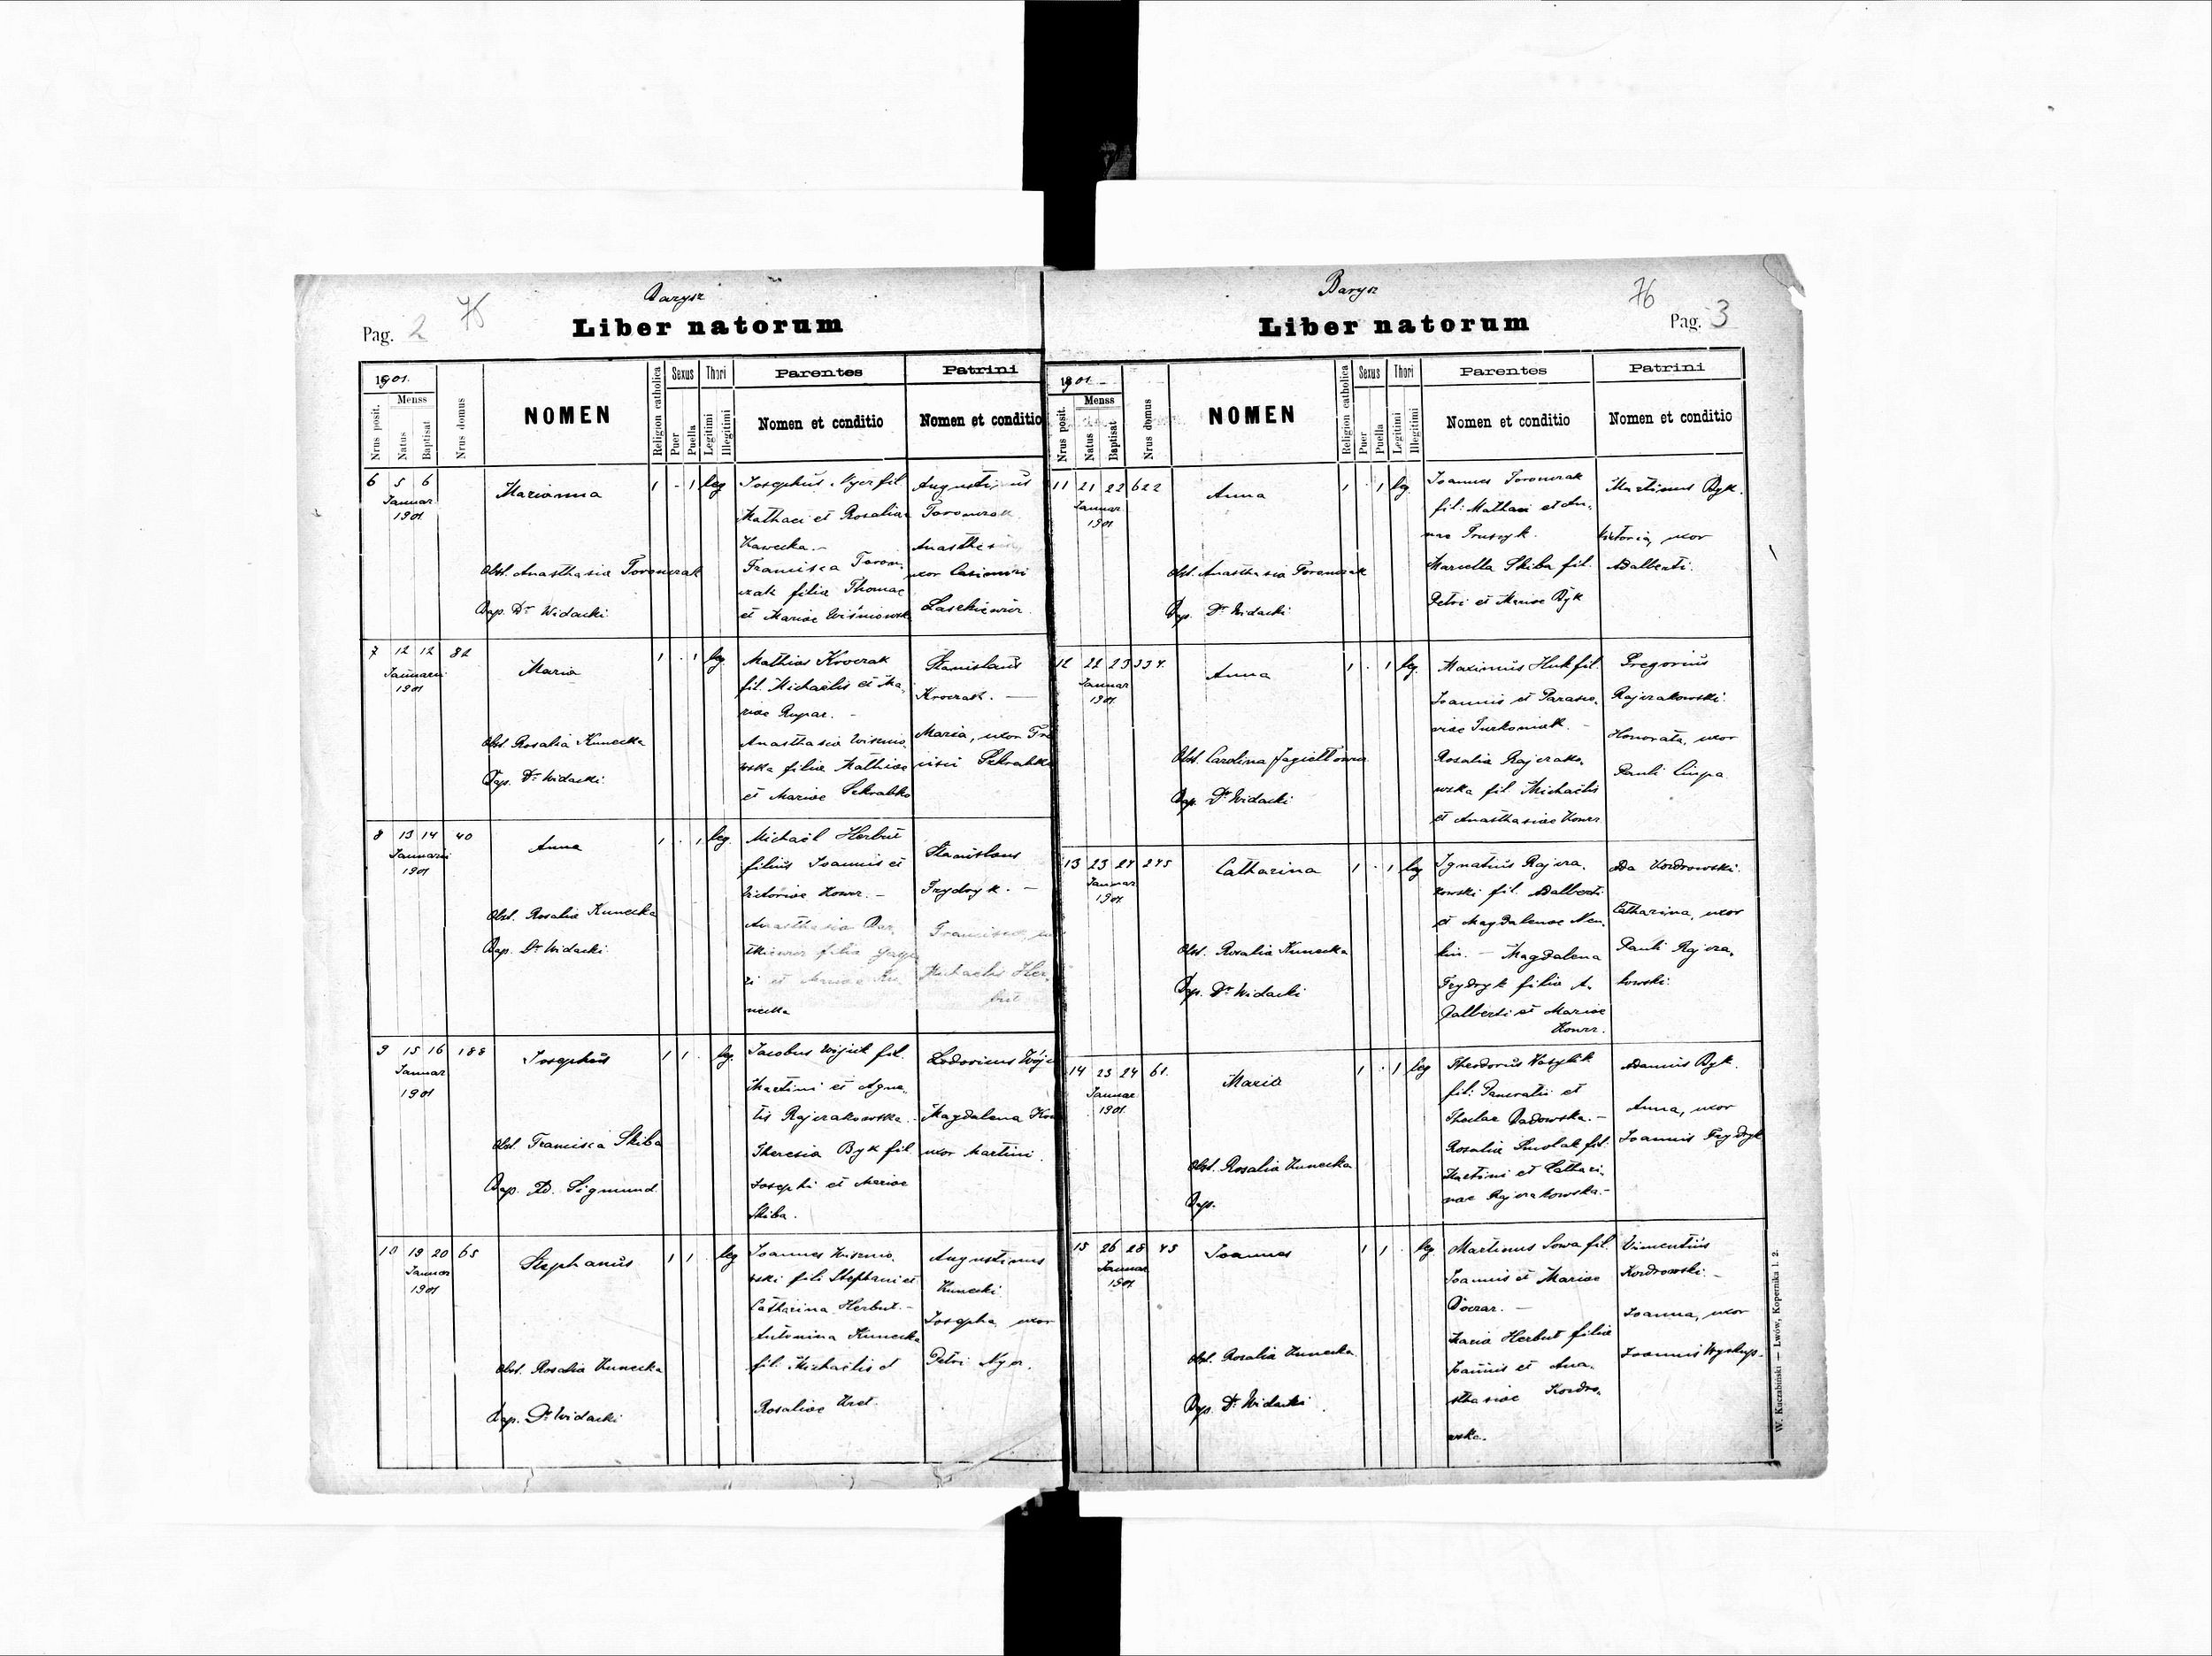 Barysz
75
Pag. 2
Liber natorum
1901.
Menss
Nrus posit.
Natus
Baptisat
Nrus domus
NOMEN
Religion catholica
Sexus
Puer
Puella
Thori
Legitimi
Illegitimi
Parentes
Nomen et conditio
Patrini
Nomen et conditio
6 5 6
Januar
1901
Marianna
1 - 1 leg
Obst. Anasthasia Toronczak
Bap. Dr Widacki
Josephus Nyer fil
Mathaei et Rosaliae
Kawecka.-
Francisca Toron,
czak filia Thomae
et Mariae Wiśniowska
Augustinus
Toronczak
Anasthasia
uxor Casimiri
Laskiewicz
7 12 12 82
Januarii
1901
Maria
1 . 1 leg.
Obst. Rosalia Kunecka
Bap. Dr Widacki
Mathias Kroczak
fil. Michaëlis et Ma,
riae Rupar. -
Anasthasia Wisnio,
wska filia Mathiae
et Mariae Sekrabko
Stanislaus
Kroczak. -
Maria, uxor
Sekrabko
8 13 14 40
Januarii
1901
Anna
1 . 1 leg.
Obst. Rosalia Kunecka
Bap. Dr Widacki
Michaël Herbut
filius Joannis et
Victoriae Howr. -
Anasthasia Bar,
tkiewicz filia
et Mariae Ku,
necka
Stanislaus
Frydryk. -
Francisca,
Michaelis Her,
but
9 15 16 188
Januar
1901
Josephus
1 1 . leg.
Obst. Francisca Skiba
Bap. Sigmund
Jacobus Wójcik fil.
Martini et Agne,
tis Rajczakowska.
Theresia Byk fil.
Josephi et Mariae
Skiba.
Lodovicus
Magdalena
uxor Martini
10 19 20 65
Januar
1901
Stephanus
1 1 . leg
Obst. Rosalia Kunecka
Bap. Dr Widacki
Joannes Wiśnio,
wski fil: Stephani et
Catharina Herbut.-
Antonina Kunecka
fil. Michaëlis et
Rosaliae
Augustinus
Kunecki
Josepha, uxor
Petri Nyer.
Barysz
76
Pag. 3
Liber natorum
1901
Menss
Nrus posit.
Natus
Baptisat
Nrus domus
NOMEN
Religion catholica
Sexus
Puer
Puella
Thori
Legitimi
Illegitimi
Parentes
Nomen et conditio
Patrini
Nomen et conditio
11 21 22 622
Januar
1901
Anna
1 . 1 leg.
Obst. Anasthasia Toronczak
Bap. Dr Widacki
Joannes Toronczak
fil: Mathaei et An,
nae
Marcella Skiba fil.
Petri et Mariae Byk
Martinus Byk.
Victoria, uxor
Adalberti.
12 22 23 334.
Januar
1901.
Anna
1 . 1 leg.
Obst. Carolina Jagiełłowicz
Bap. Dr Widacki
Maximus Huk fil.
Joannis et Parasce,
viae
Rosalia Rajczako,
wska fil Michaëlis
et Anasthasiae Howr
Gregorius
Rajczakowski
Honorata, uxor
Pauli
13 23 24 245
Januar
1901
Catharina
1 . 1 leg
Obst. Rosalia Kunecka
Bap. Dr Widacki
Ignatius Rajcza,
kowski fil. Adalberti
et Magdalenae
- Magdalena
Frydryk filia A,
dalberti et Mariae
Howr.
Kordrowski
Catharina, uxor
Pauli Rajcza,
kowski
14 23 24 61.
Januar
1901.
Maria
1 . 1 leg
Obst. Rosalia Kunecka
Bap.
Theodorus Wasylik
fil: Pancratii et
Theclae Dadowska.-
Rosalia Smolak fil.
Martini et Cathari,
nae Rajczakowska.-
Adamus Byk.
Anna, uxor
Joannis Frydryk
15 26 28 45
Januar
1901
Joannes
1 1 . leg.
Obst. Rosalia Kunecka
Bap. Dr Widacki
Martinus Sowa fil.
Joannis et Mariae
Boczar. -
Maria Herbut filia
Joannis et Ana,
sthasiae Kordro,
wska.
Vincentius
Kordrowski. -
Joanna, uxor
Joannis
W. Kuczabiński — Lwów, Kopernika l. 2.